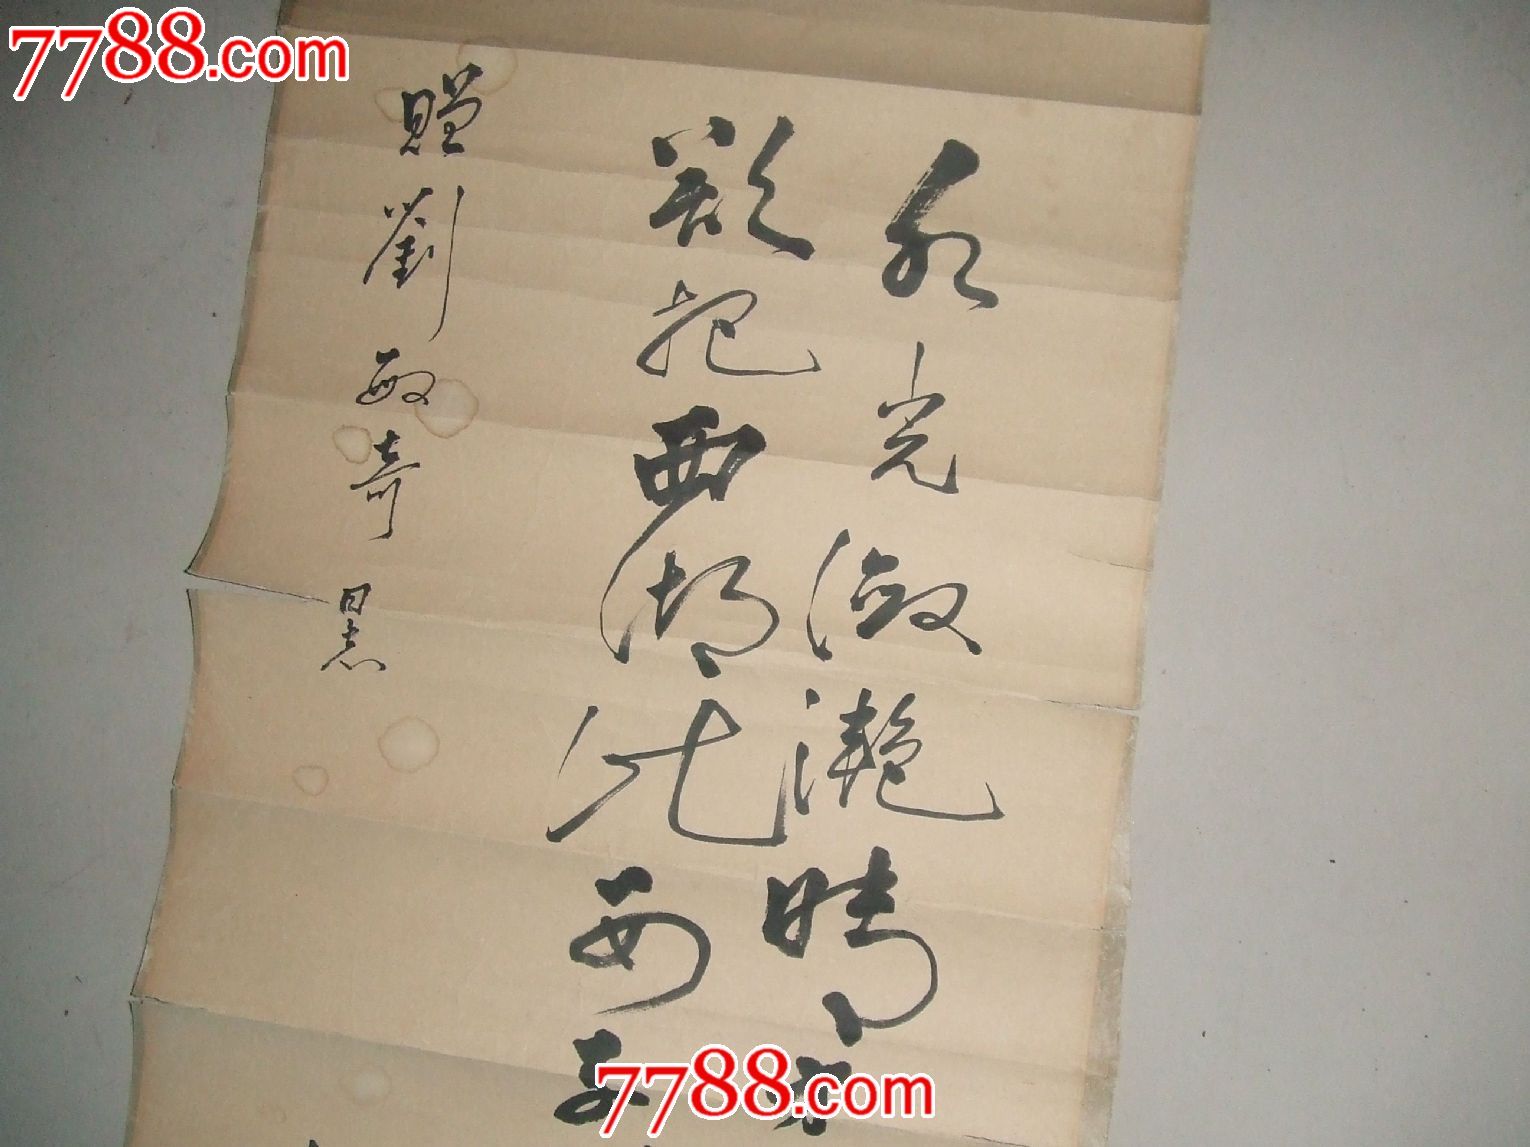 7788.com
水光潋滟晴
欲把西湖比西子
贈劉敏奇同志
7788.com